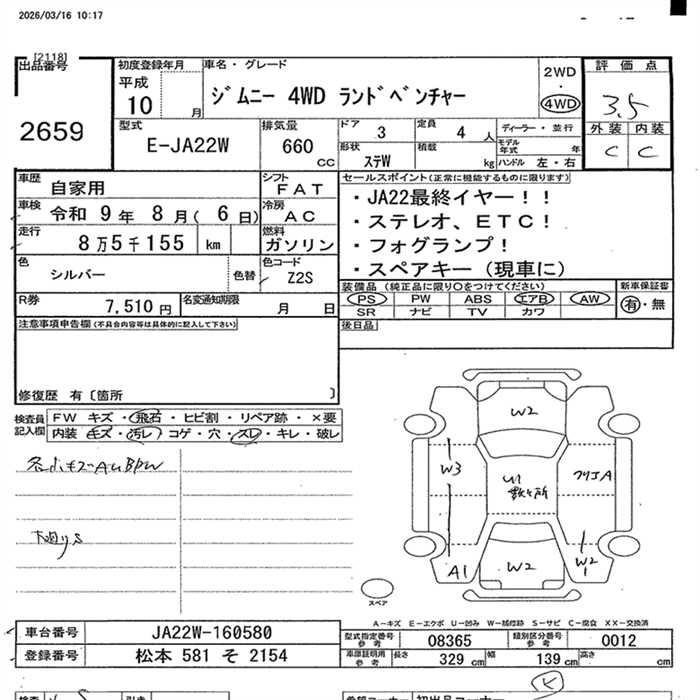 2026/03/16 10:17
[2118]
出品番号
2659
初度登録年月
平成
10 月
車名・グレード
ジムニー 4WD ランドベンチャー
2WD
・
4WD
評価点
3.5
外装 内装
C C
型式
E-JA22W
排気量
660 CC
ドア 3
定員 4 人
ディーラー・並行
モデル年式 年
形状 ステW
積載 kg
ハンドル 左・右
車歴 自家用
シフト FAT
車検 令和 9年 8月( 6日)
冷房 AC
走行 8万5千155 km
燃料 ガソリン
色 シルバー
色替
色コード Z2S
R券 7,510円
名変通知期限 月 日
セールスポイント(正常に機能するものに限ります)
・JA22最終イヤー!!
・ステレオ、ETC!
・フォグランプ!
・スペアキー(現車に)
装備品(純正品に限り○をつけてください)
PS PW ABS エアB AW
SR ナビ TV カワ
新車保証書
有・無
後日品
注意事項申告欄(不具合内容等は具体的に記入して下さい)
修復歴 有〔箇所 〕
検査員記入欄
FW キズ・飛石・ヒビ割・リペア跡・×要
内装 キズ・汚レ・コゲ・穴・スレ・キレ・破レ
下廻りS
W2
W3
U1
クリアA
W2
W2
1
A1
スペア
A-キズ E-エクボ U-凹み W-補修跡 S-サビ C-腐食 XX-交換済
車台番号 JA22W-160580
登録番号 松本 581 そ 2154
型式指定番号参考 08365
類別区分番号参考 0012
車庫証明用参考 長さ 329 cm 幅 139 cm 高さ cm